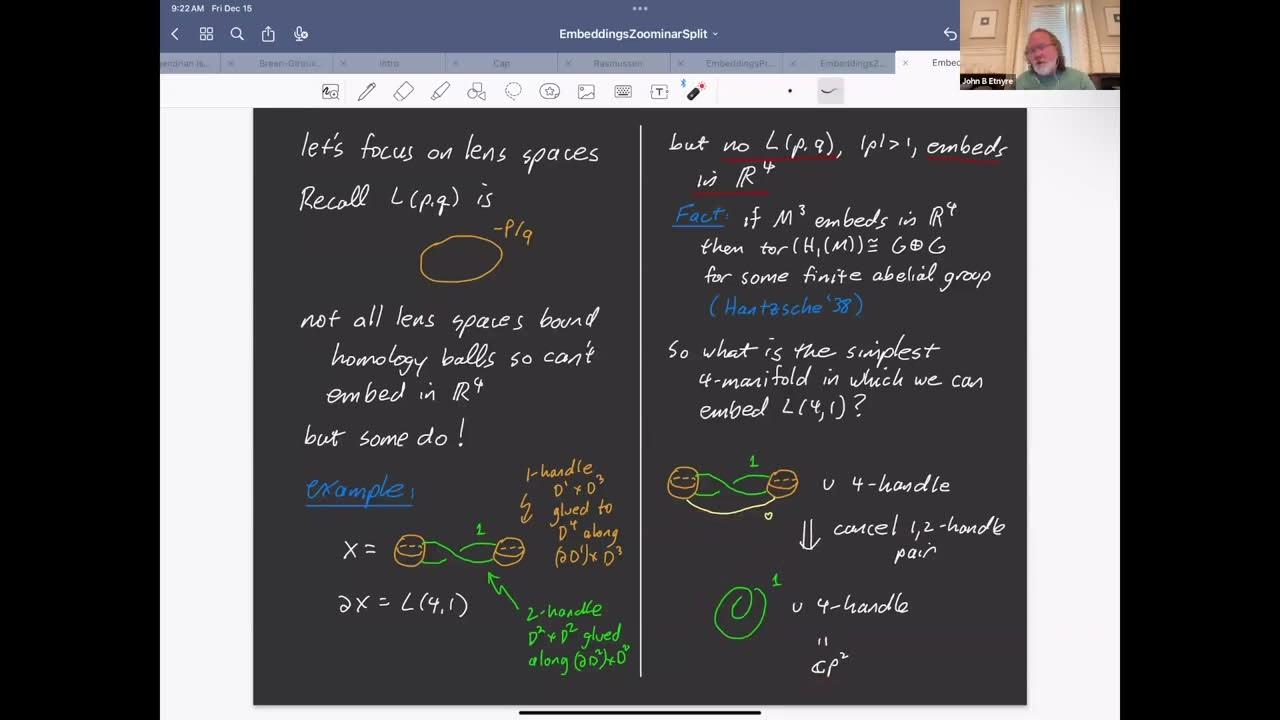 9:22AM Fri Dec 15
EmbeddingsZoominarSplit
endrian is...
Breen-Giroux...
Intro
Cap
Rasmussen
EmbeddingsPr...
EmbeddingsZ...
Embed
John B Etnyre
let's focus on lens spaces
Recall L(p,q) is
-P/q
not all lens spaces bound
homology balls so can't
embed in ℝ⁴
but some do!
example:
1-handle
D¹ × D³
glued to
D⁴ along
(∂D¹) × D³
1
X =
∂X = L(4,1)
2-handle
D² × D² glued
along (∂D²) × D²
but no L(p,q), |p| > 1, embeds
in ℝ⁴
Fact: if M³ embeds in ℝ⁴
then tor(H₁(M)) ≅ G ⊕ G
for some finite abelial group
(Hantzsche '38)
So what is the simplest
4-manifold in which we can
embed L(4,1)?
1
∪ 4-handle
0
⇓ cancel 1,2-handle
pair
1
∪ 4-handle
=
ℂP²